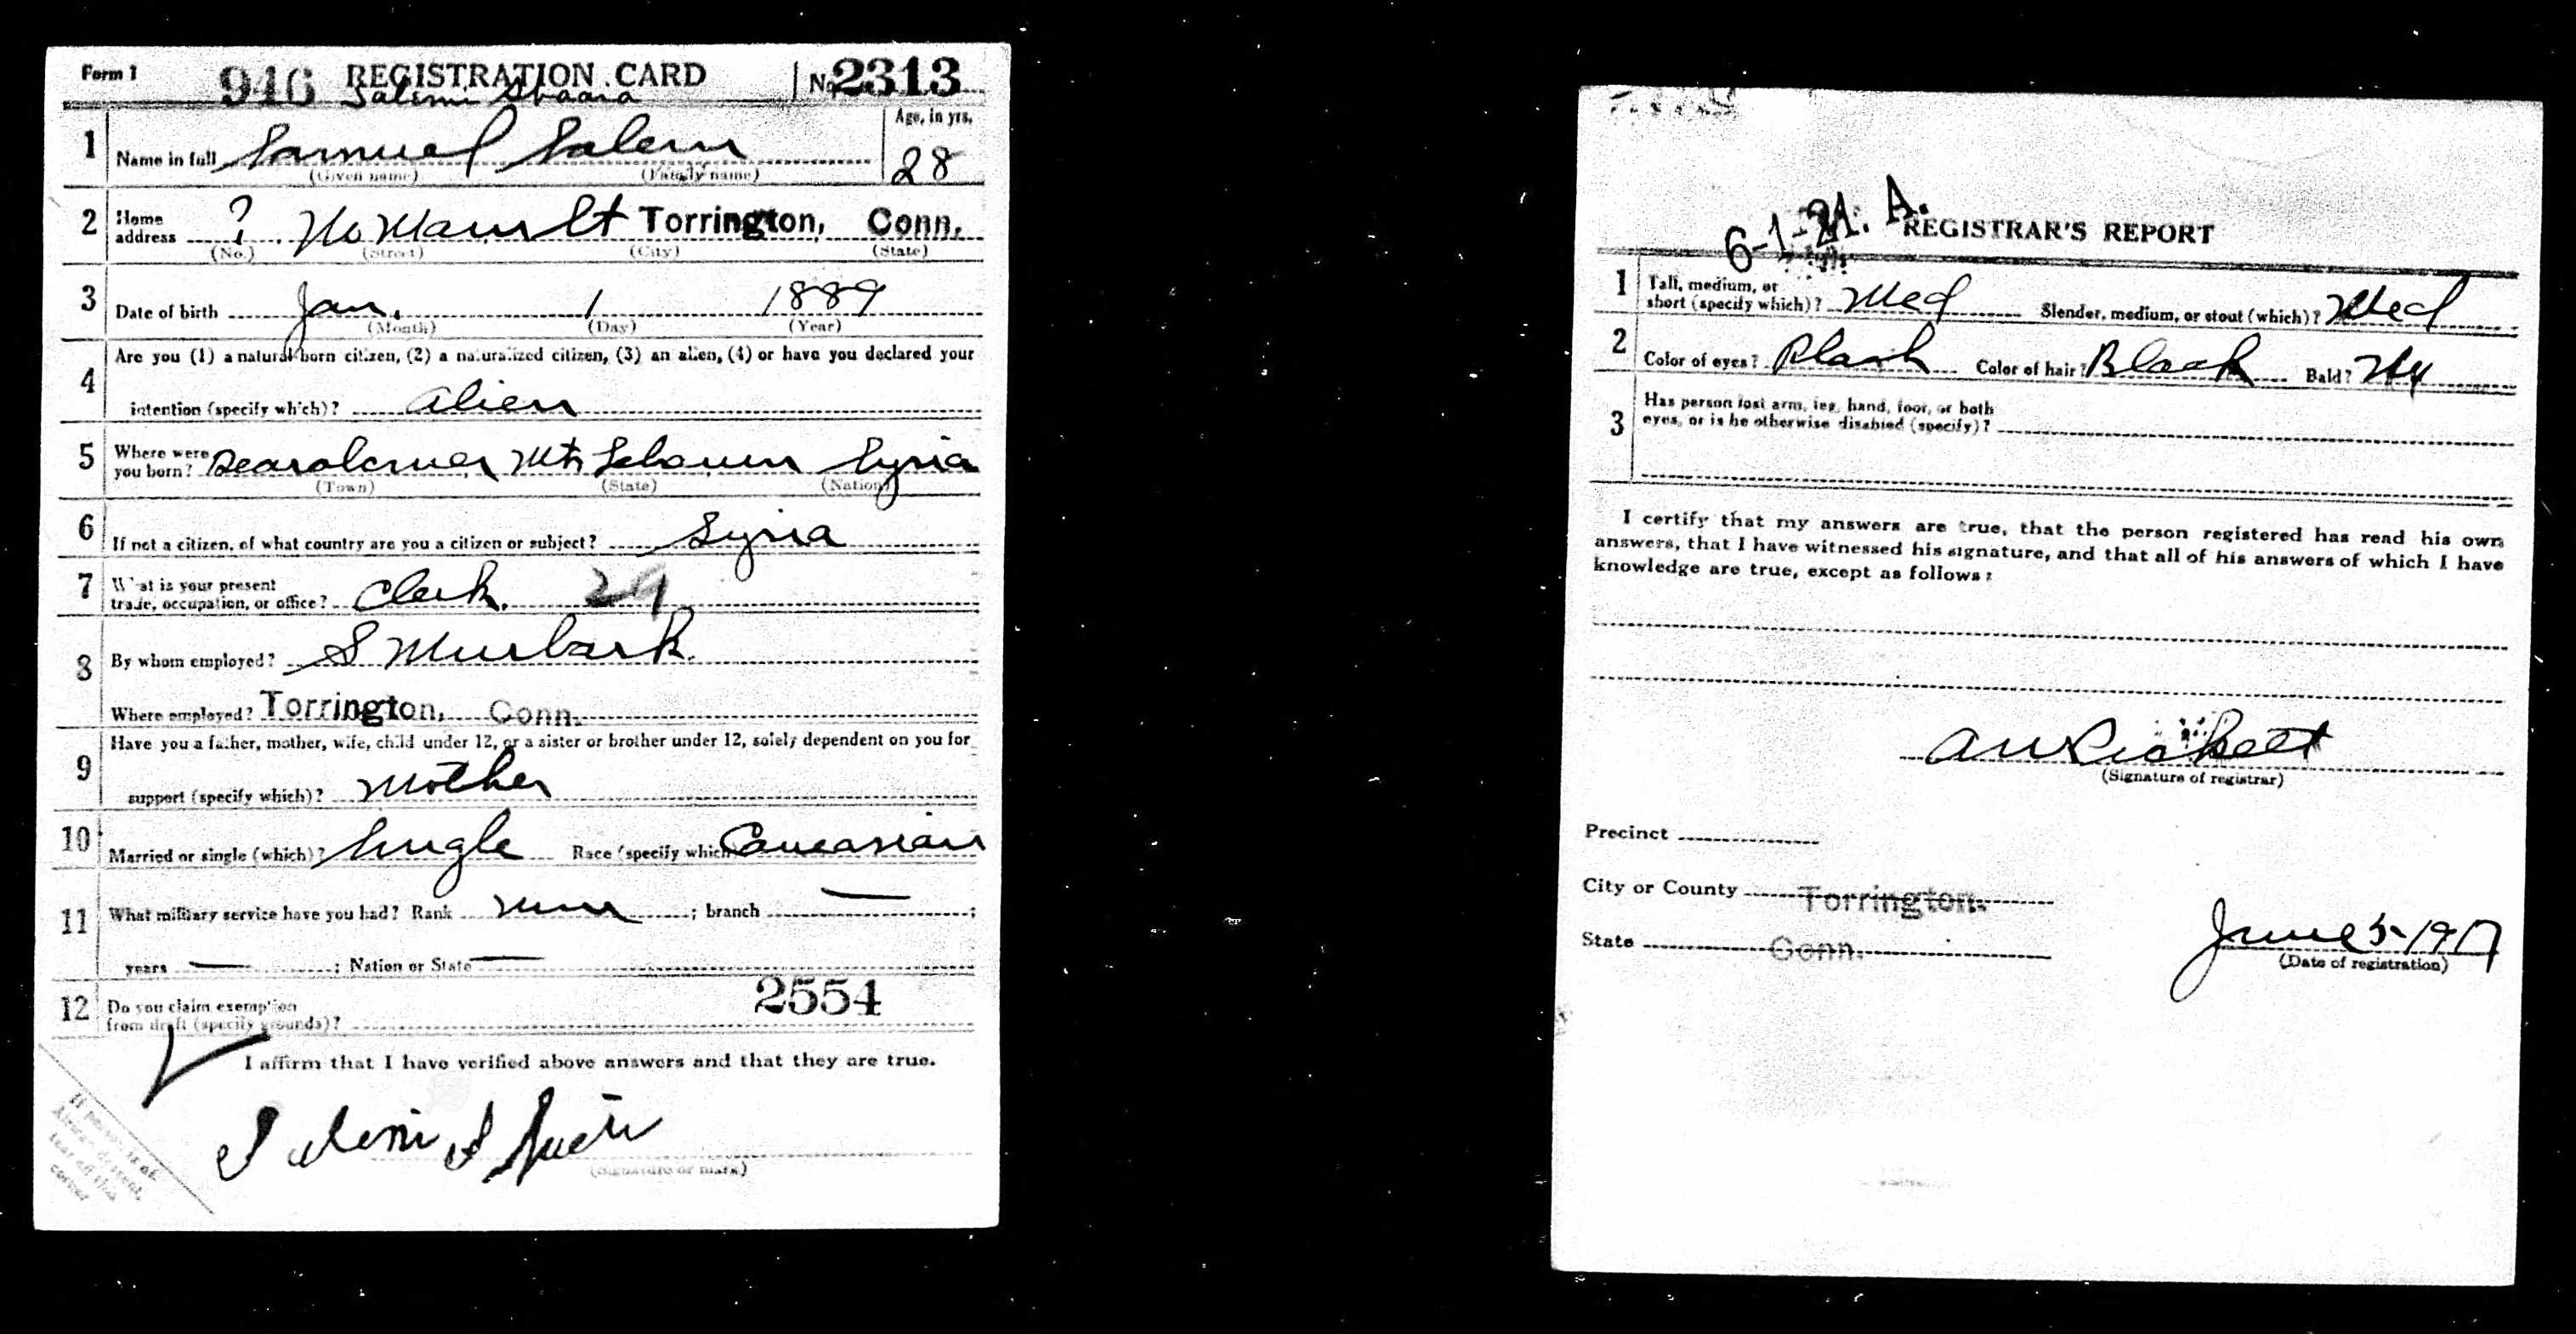 Form 1 946 REGISTRATION CARD No. 2313
Salemi Shaara
1 Name in full Samuel Salem Age, in yrs. 28
(Given name) (Family name)
2 Home address ? No Main St Torrington, Conn.
(No.) (Street) (City) (State)
3 Date of birth Jan. 1 1889
(Month) (Day) (Year)
4 Are you (1) a natural born citizen, (2) a naturalized citizen, (3) an alien, (4) or have you declared your
intention (specify which)? alien
5 Where were you born? Mt Lebanon Syria
(Town) (State) (Nation)
6 If not a citizen, of what country are you a citizen or subject? Syria
7 What is your present trade, occupation, or office? Clerk. 24
8 By whom employed? S
Where employed? Torrington, Conn.
9 Have you a father, mother, wife, child under 12, or a sister or brother under 12, solely dependent on you for
support (specify which)? Mother
10 Married or single (which)? Single Race (specify which) Caucasian
11 What military service have you had? Rank none ; branch — ;
years — ; Nation or State —
12 Do you claim exemption from draft (specify grounds)? 2554
I affirm that I have verified above answers and that they are true.
Salemi
(Signature or mark)
If person is of African descent, tear off this corner
6-1-21. A.
REGISTRAR'S REPORT
1 Tall, medium, or short (specify which)? Med Slender, medium, or stout (which)? Med
2 Color of eyes? Black Color of hair? Black Bald? No
3 Has person lost arm, leg, hand, foot, or both
eyes, or is he otherwise disabled (specify)?
I certify that my answers are true, that the person registered has read his own
answers, that I have witnessed his signature, and that all of his answers of which I have
knowledge are true, except as follows:
(Signature of registrar)
Precinct
City or County Torrington.
State Conn.
June 5-1917
(Date of registration)